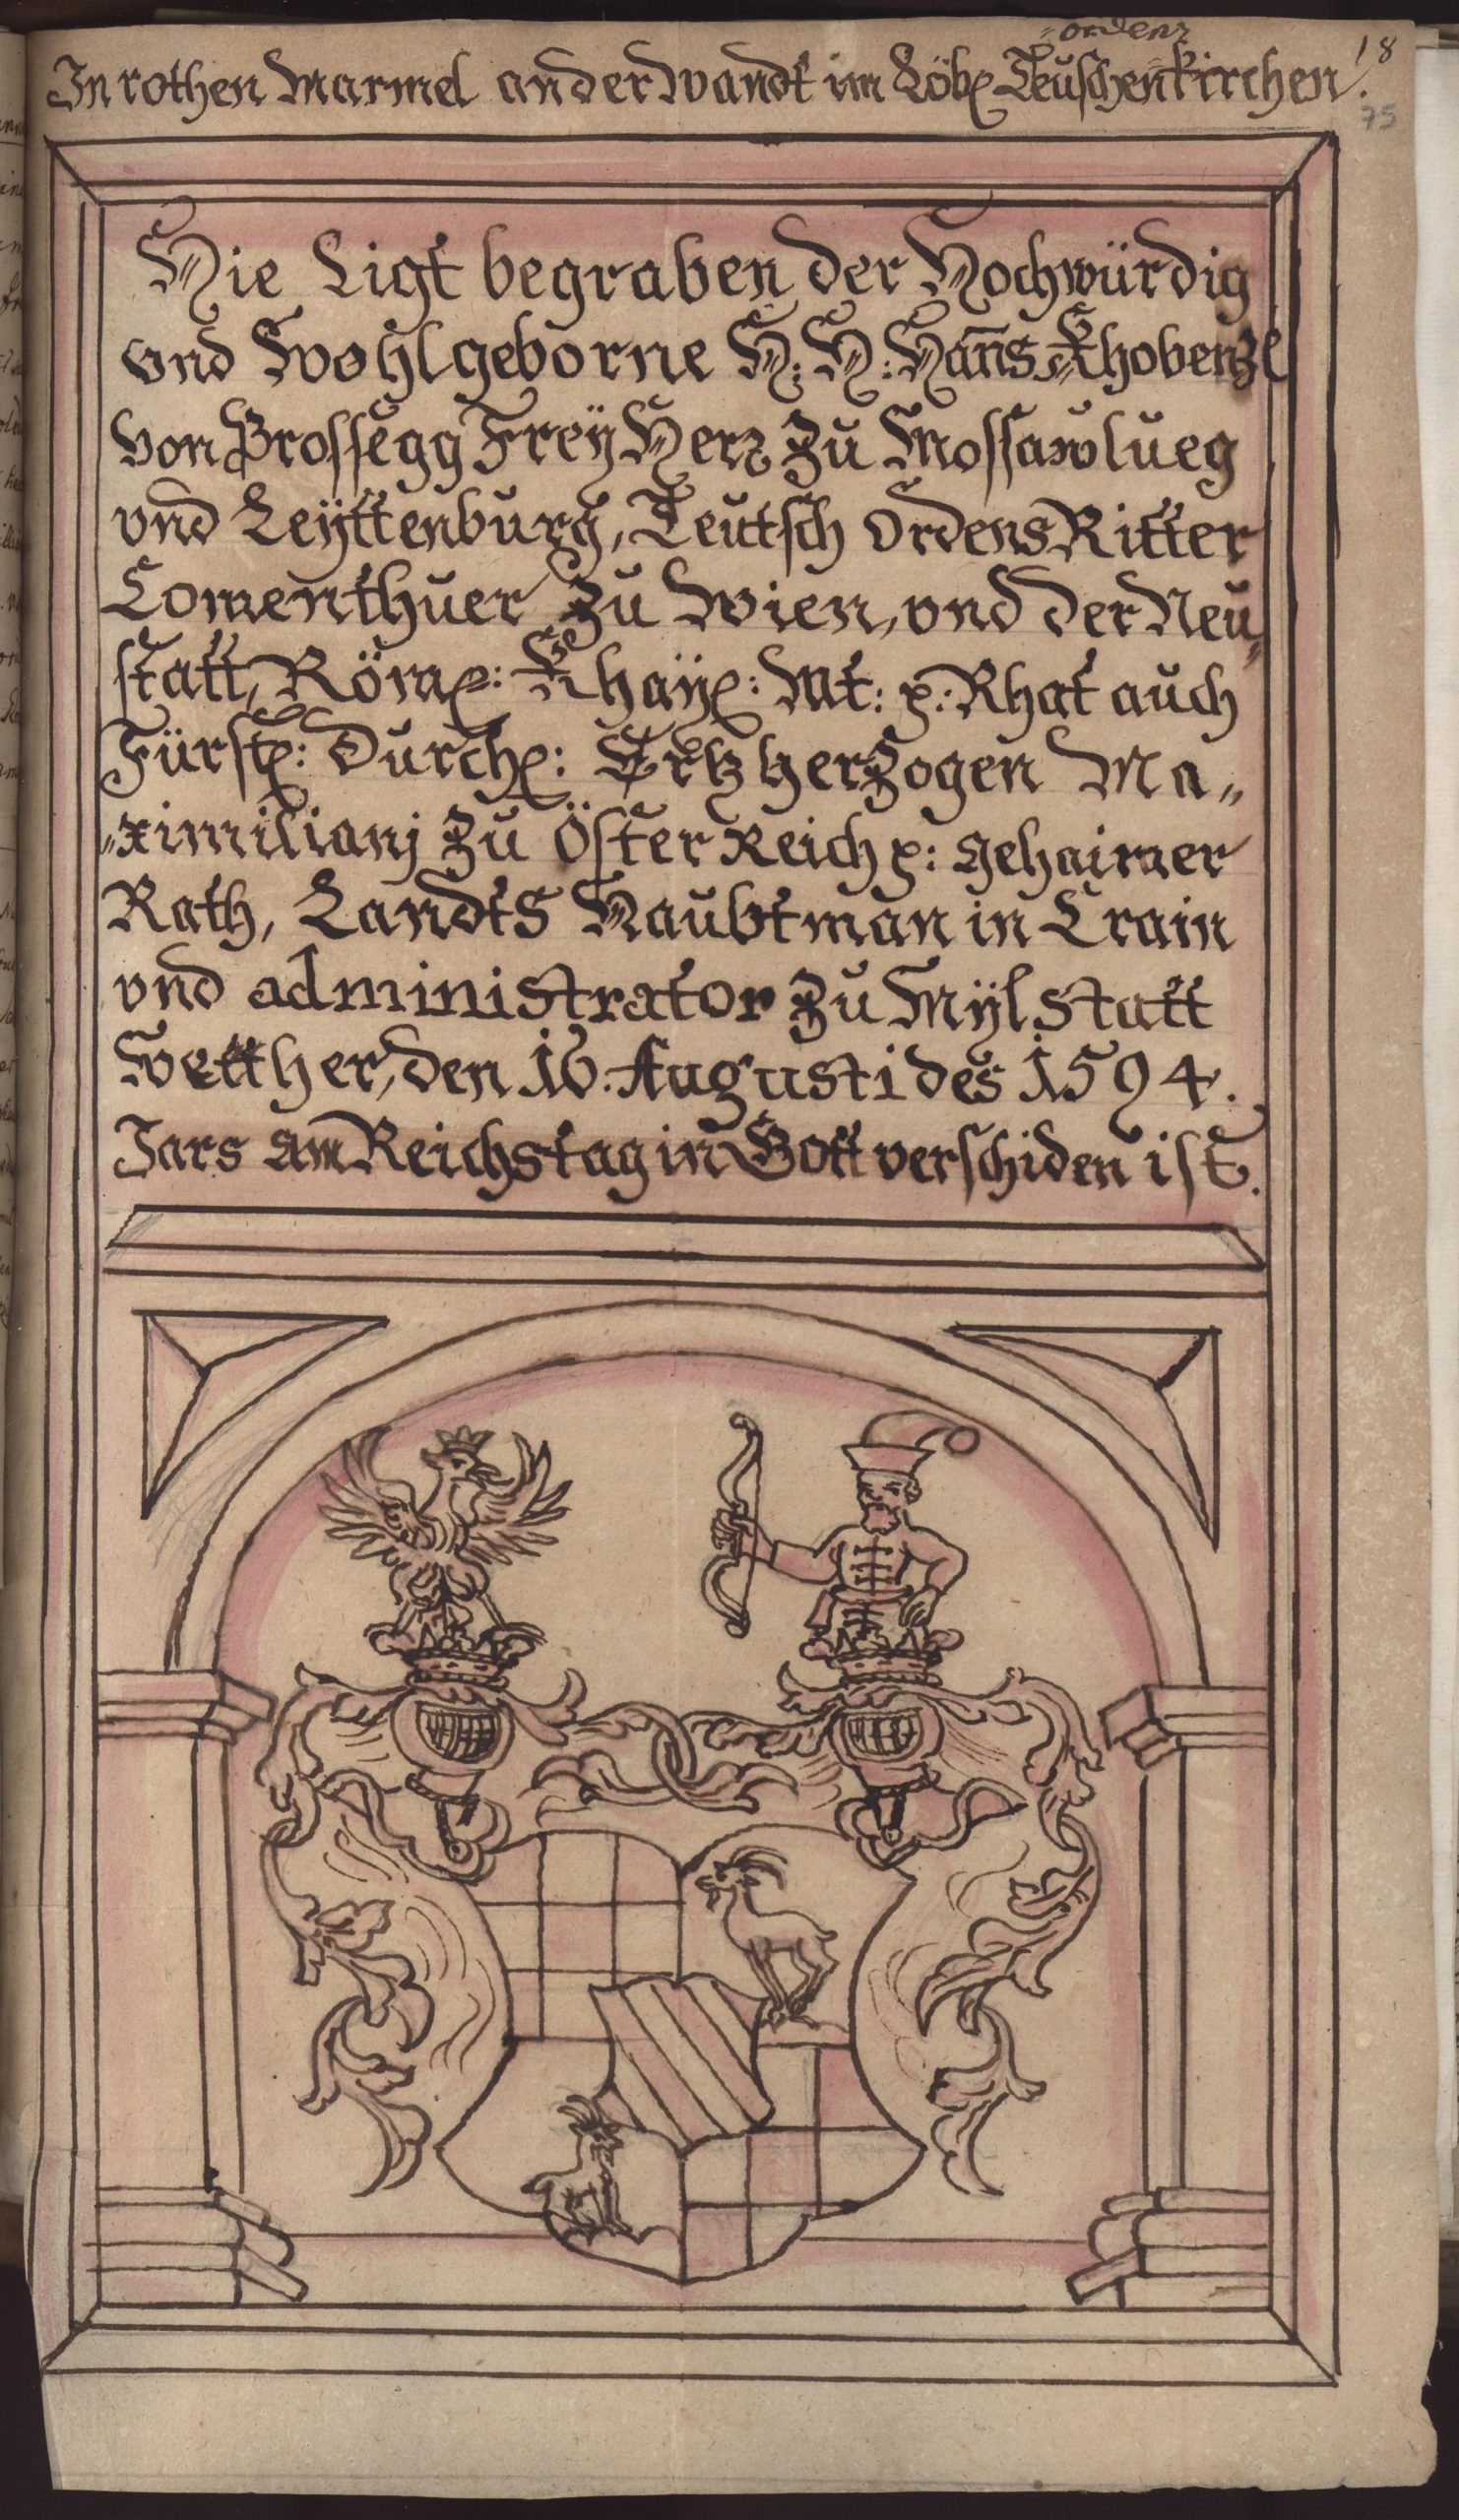 ordens
18
In rothen Marmel an der Wandt im Löbl: Teuschenkirchen.
75
Hie Ligt begraben der Hochwürdig
vnd Wohlgeborne H: H: Hanns Khobenzl
von Prossegg FreyHerr zu Mossaw lueg
vnd Leÿttenburg, Teutsch Ordens Ritter
Comenthuer zu Wien, vnd der Neu„
statt, Röm: Khaÿ: Mt: p: Rhat auch
Fürstl: Durchl: Ertzherzogen Ma„
„ximilianj zu Österreich p: gehaimer
Rath, Landts Haubtman in Crain
vnd administrator zu Mÿlstatt
Wellher, den 16. Augusti des 1594.
Jars am Reichstag in Gott verschiden ist.